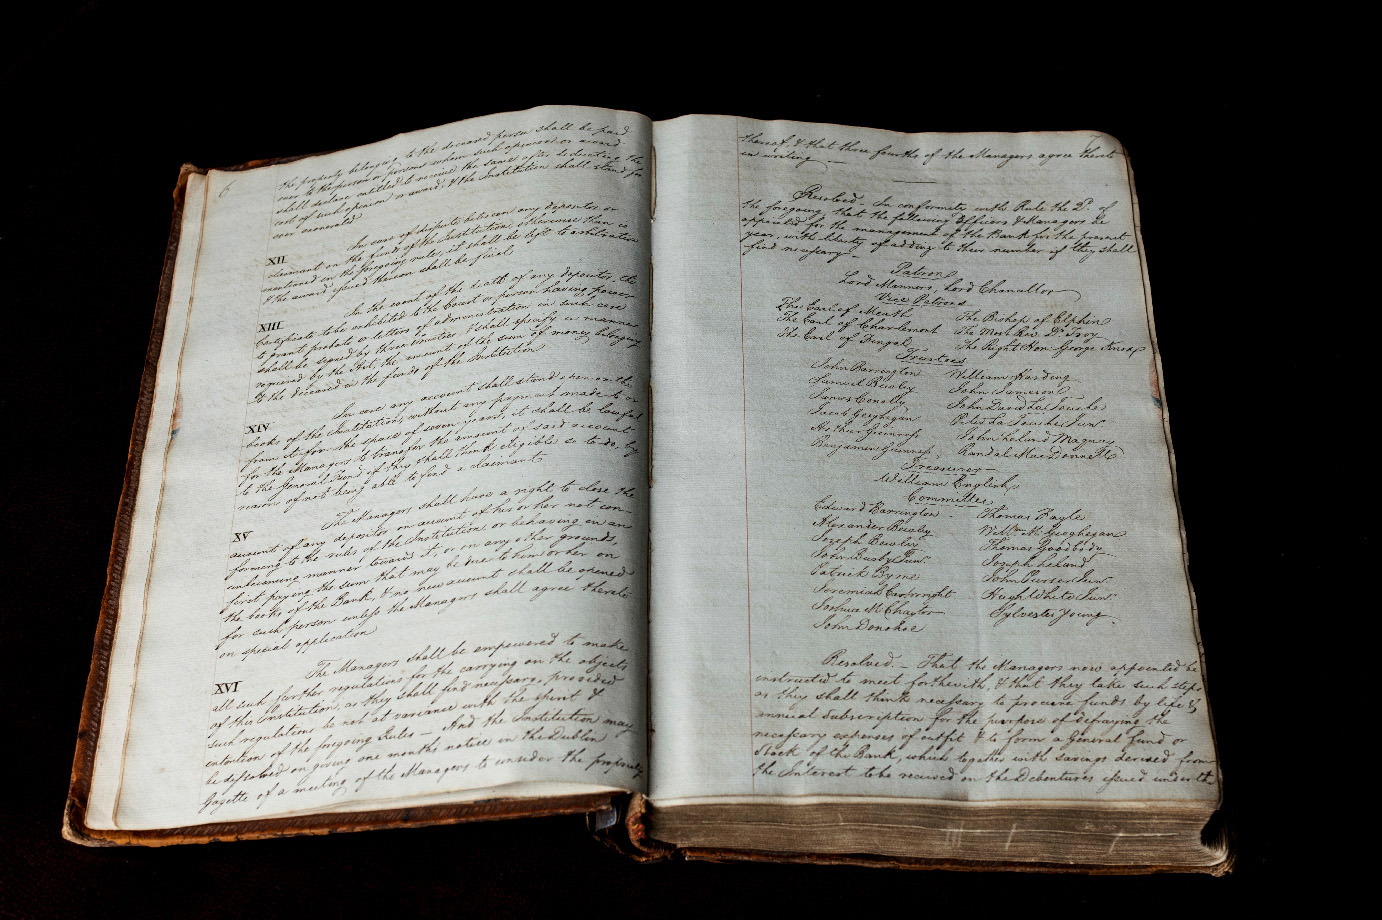 6
the property belonging to the deceased person shall be paid
over to the person or persons in whom such opinion or award
shall declare entitled to receive the same after deducting the
cost of such opinion or award, & the Institution shall stand for
ever exonerated
XII In case of dispute between any depositor or
claimant on the funds of the Institution, otherwise than is
mentioned in the foregoing rule, it shall be left to arbitration
& the award issued thereon shall be final
XIII In the event of the death of any depositor, the
Certificate to be exhibited to the Court or person having power
to grant probate or letters of administration in such case
shall be signed by three Trustees & shall specify in manner
required by the Act, the amount of the sum of money belonging
to the deceased in the funds of the Institution
XIV In case any account shall stand open on the
books of the Institution, without any payment made to or
from it, for the space of seven years, it shall be lawful
for the Managers to transfer the amount of said account
to the General Fund if they shall think eligible so to do, by
reason of not being able to find a claimant
XV The Managers shall have a right to close the
account of any depositor on account of his or her not con-
forming to the rules of the Institution or behaving in an
unbecoming manner towards it, or on any other grounds,
first paying the sum that may be due to him or her on
the books of the Bank, & no new account shall be opened
for such person unless the Managers shall agree thereto
on special application
XVI The Managers shall be empowered to make
all such further regulations for the carrying on the objects
of the Institution, as they shall find necessary, provided
such regulations be not at variance with the spirit &
intention of the foregoing Rules — And the Institution may
be dissolved on giving one months notice in the Dublin
Gazette of a meeting of the Managers to consider the propriety
thereof, & that three fourths of the Managers agree thereto
in writing —
Resolved — In conformity with Rule the 2d. of
the foregoing that the following Officers & Managers be
appointed for the management of the Bank for the present
year, with liberty of adding to their number if they shall
find necessary —
Patron
Lord Manners, Lord Chancellor
Vice Patrons
The Earl of Meath The Bishop of Elphin
The Earl of Charlemont The Most Rev. Dr. Troy
The Earl of Fingal The Right Hon. George Knox
Trustees
John Barrington William Harding
Samuel Bewley John Jameson
James Conolly John David La Touche
Jacob Geoghegan Peter La Touche Jun
Arthur Guinness John Leland Maquay
Benjamin Guinness Randal MacDonnell
Treasurer
William English
Committee
Edward Barrington Thomas Fayle
Alexander Bewley Willm. M Geoghegan
Joseph Bewley Thomas Goodbody
John Busby Jun Joseph Leland
Patrick Byrne John Purser Jun
Jeremiah Cartwright Hugh White Jun
Joshua M Chaytor Sylvester Young
John Donohoe
Resolved — That the Managers now appointed be
instructed to meet forthwith, & that they take such steps
as they shall think necessary to procure funds by life &
annual Subscription for the purpose of defraying the
necessary expenses of outfit & to form a General Fund or
Stock of the Bank, which together with savings derived from
the Interest to be received on the Debentures issued under th